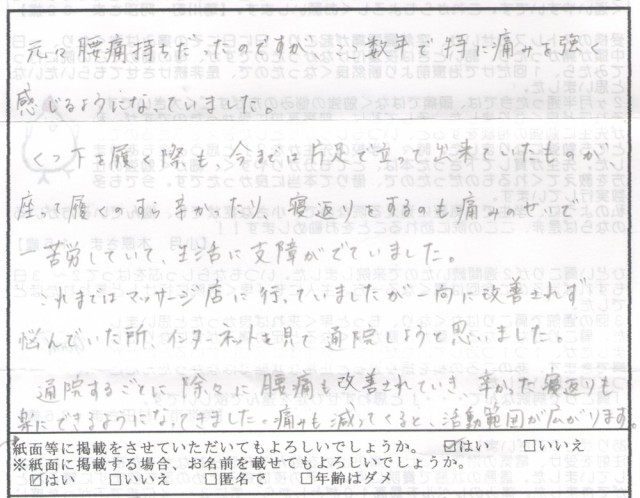 元々腰痛持ちだったのですが、ここ数年で特に痛みを強く
感じるようになっていました。
くつ下を履く際も、今までは片足で立って出来ていたものが、
座って履くのすら辛かったり、寝返りをするのも痛みのせいで
一苦労していて、生活に支障がでていました。
これまではマッサージ店に行っていましたが一向に改善されず
悩んでいた所、インターネットを見て通院しようと思いました。
通院するごとに除々に腰痛も改善されていき、辛かった寝返りも
楽にできるようになってきました。痛みも減ってくると、活動範囲が広がります。
紙面等に掲載をさせていただいてもよろしいでしょうか。 ☑はい □いいえ
※紙面に掲載する場合、お名前を載せてもよろしいでしょうか。
☑はい □いいえ □匿名で □年齢はダメ